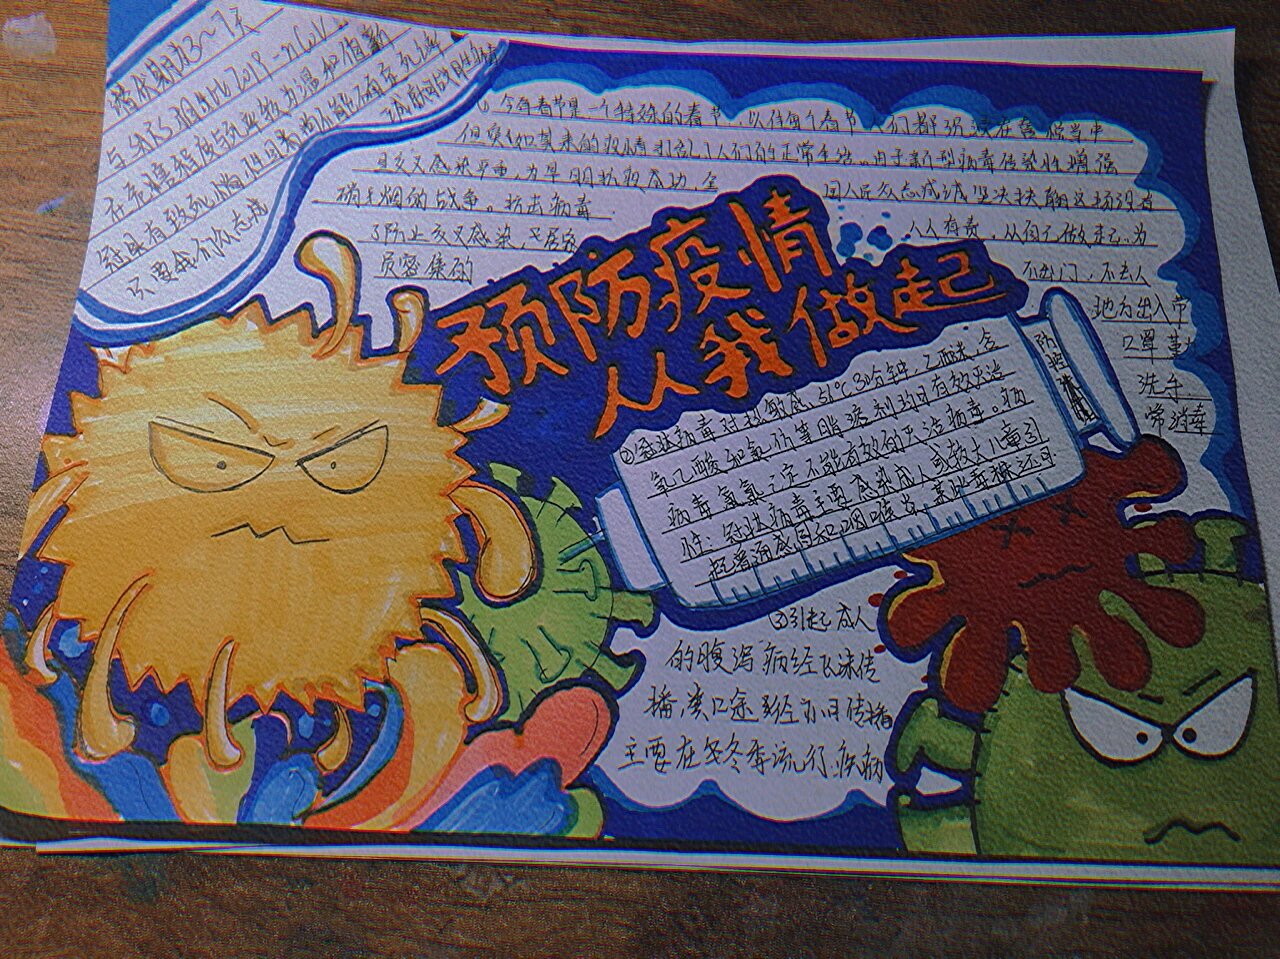 潜伏期起3~7天
与SARS相比2019-nCoV
在危害强度与
冠具有致死
只要我们众志成
预防疫情
从我做起
①今年春节是一个特殊的春节,以往每个春节人们都沉浸在喜悦当中
但突如其来的疫情打乱了人们的正常生活。由于新型病毒传染性增强
且交叉感染严重,为早期抗疫成功,全
国人民众志成城坚决扶翰这场没有
硝烟的战争。抗击病毒
人人有责,从自己做起。为
了防止交叉感染,又居家
不出门,不去人
员密集的
地方出入带
口罩勤
洗手
常消毒
防控
②冠状病毒对热敏感,51°C30分钟,乙醚,含
氯乙酸和氯仿等脂溶剂均可有效灭活
病毒氯氯不能有效的灭活病毒。病
性:冠状病毒主要感染成人或较大儿童引
起普通感冒和咽喉炎,某些毒株还可
③引起成人
的腹泻病经飞沫传
播,粪口途径亦可传播
主要在冬季流行疾病